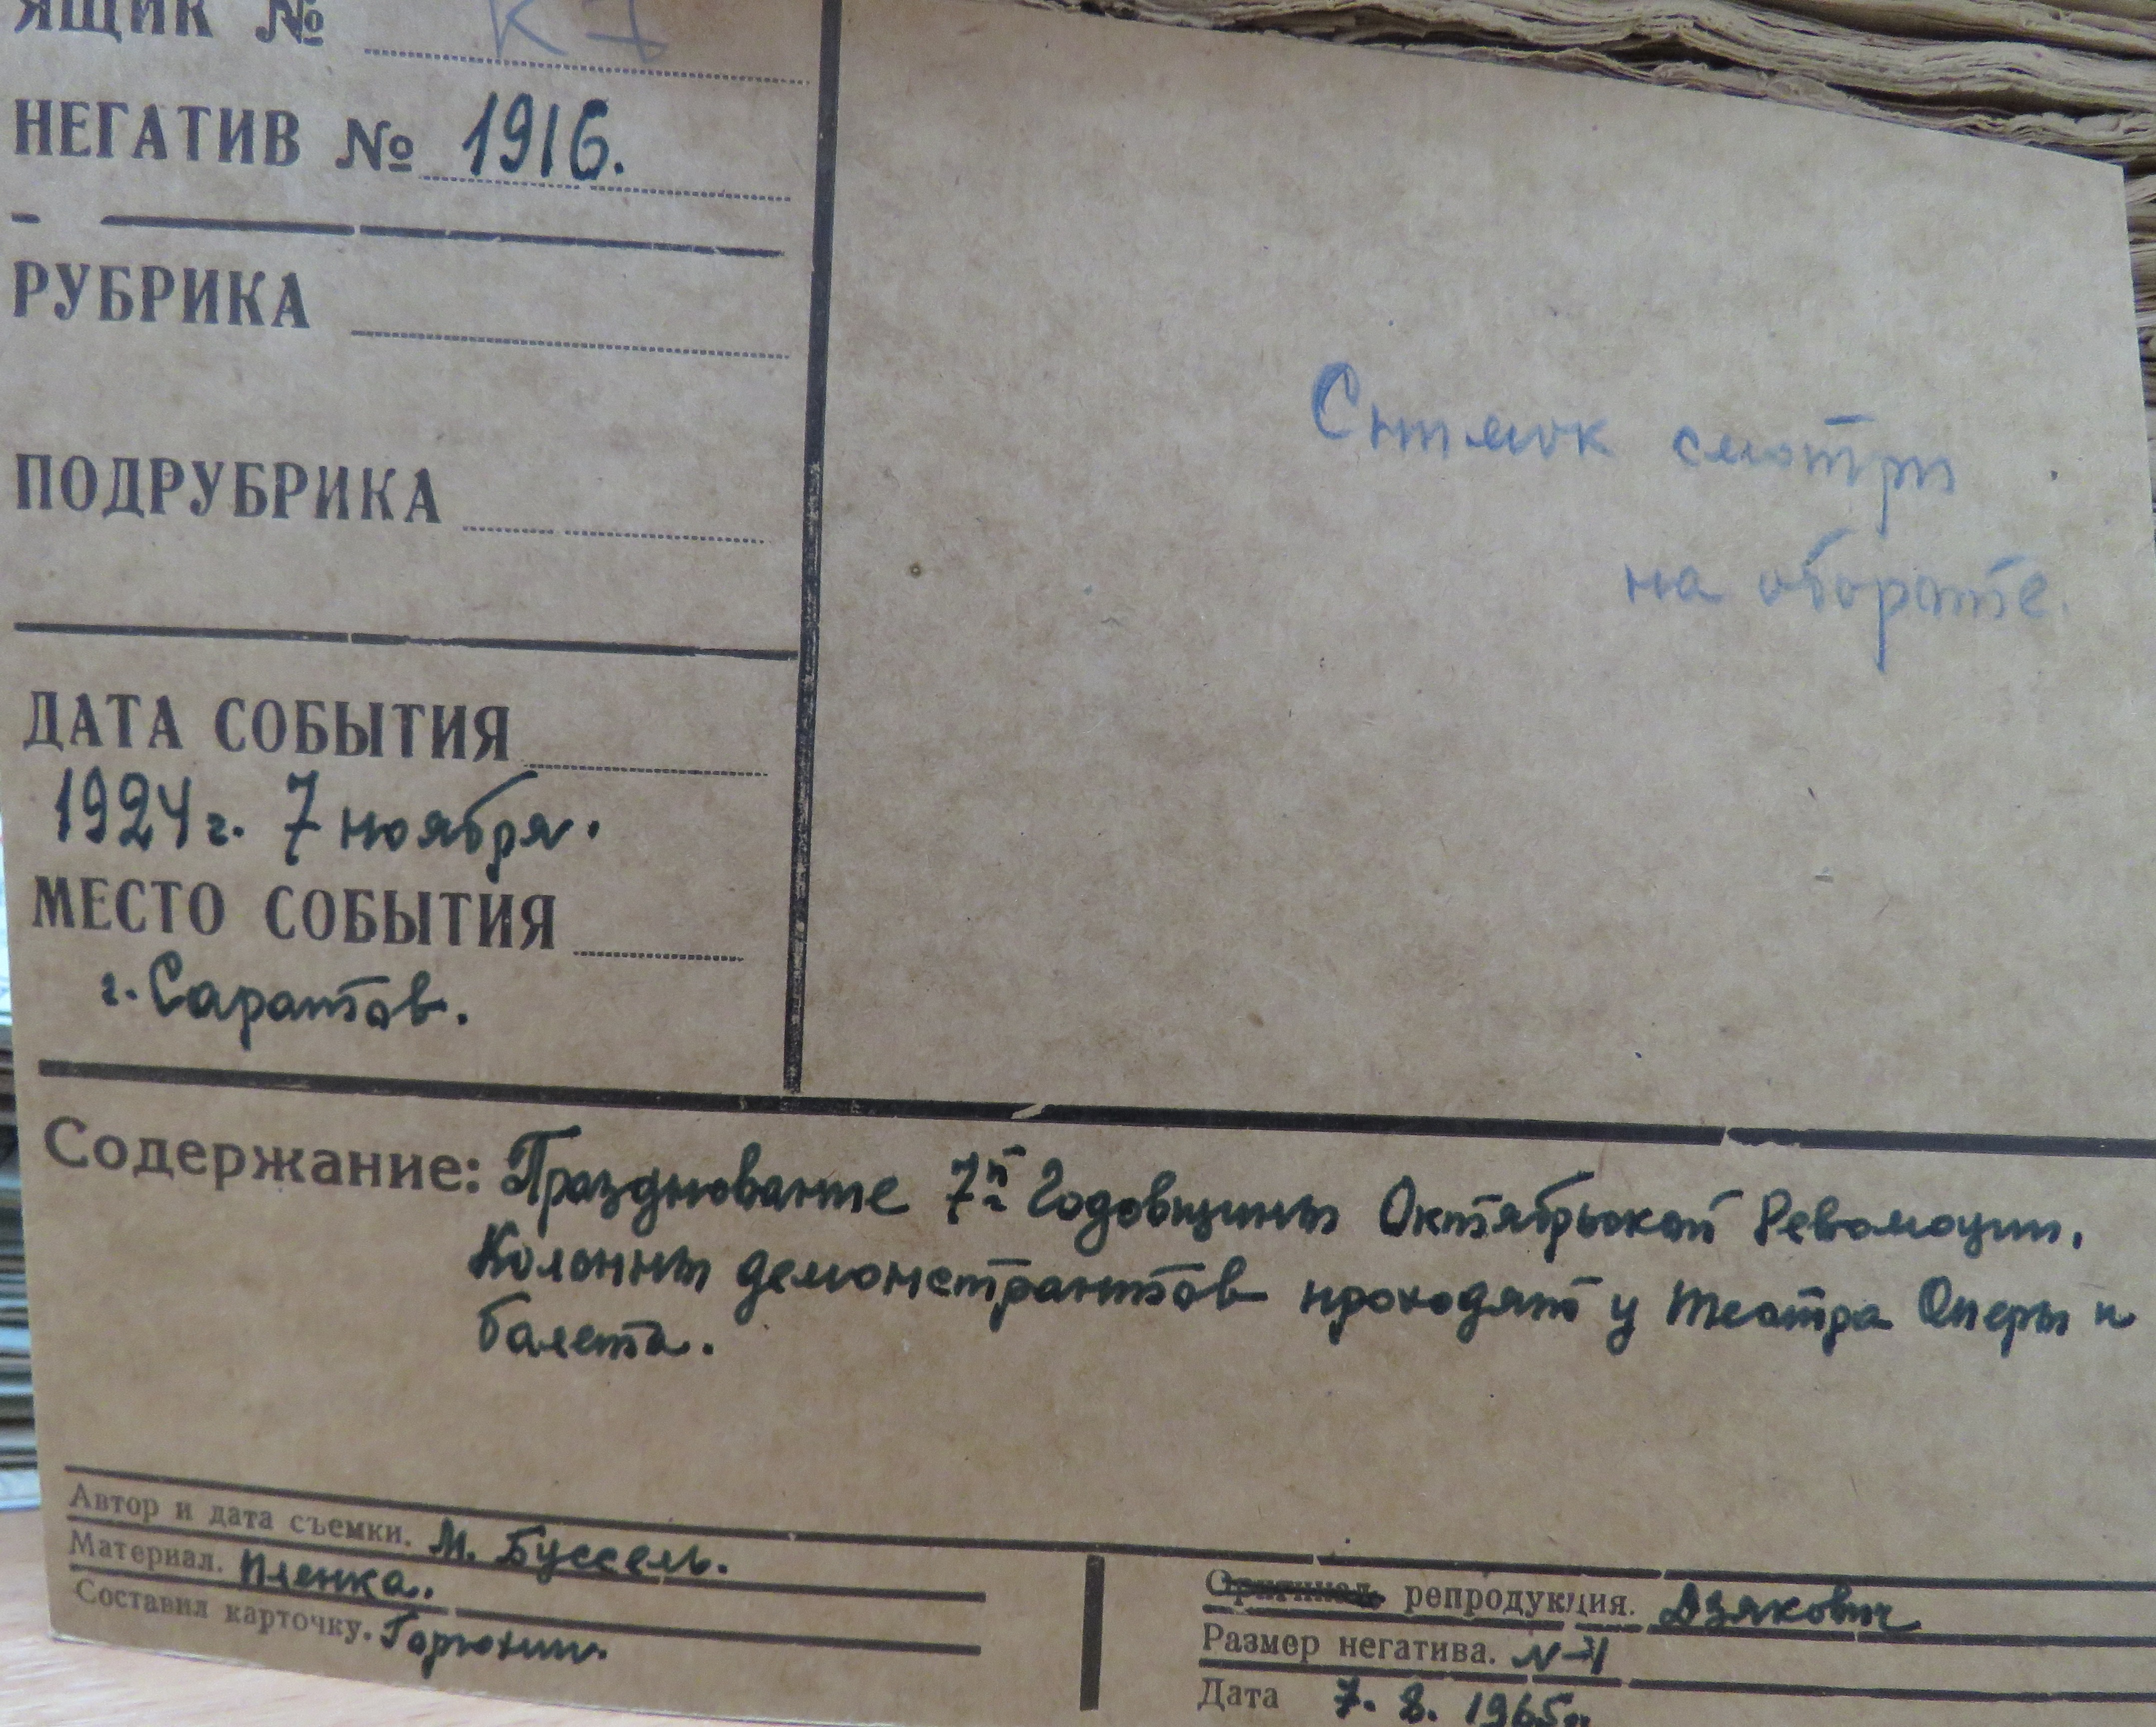 ЯЩИК № К 1
НЕГАТИВ № 1916.
РУБРИКА
ПОДРУБРИКА
Снимок смотри
на обороте.
ДАТА СОБЫТИЯ
1924 г. 7 ноября.
МЕСТО СОБЫТИЯ
г. Саратов.
Содержание: Празднование 7й Годовщины Октябрьской Революции.
Колонны демонстрантов проходят у театра Оперы и
балета.
Автор и дата съемки. М. Буссель.
Материал. Пленка.
Составил карточку. Горюнин.
Оригинал репродукция. Дзякович
Размер негатива.
Дата 7. 8. 1965г